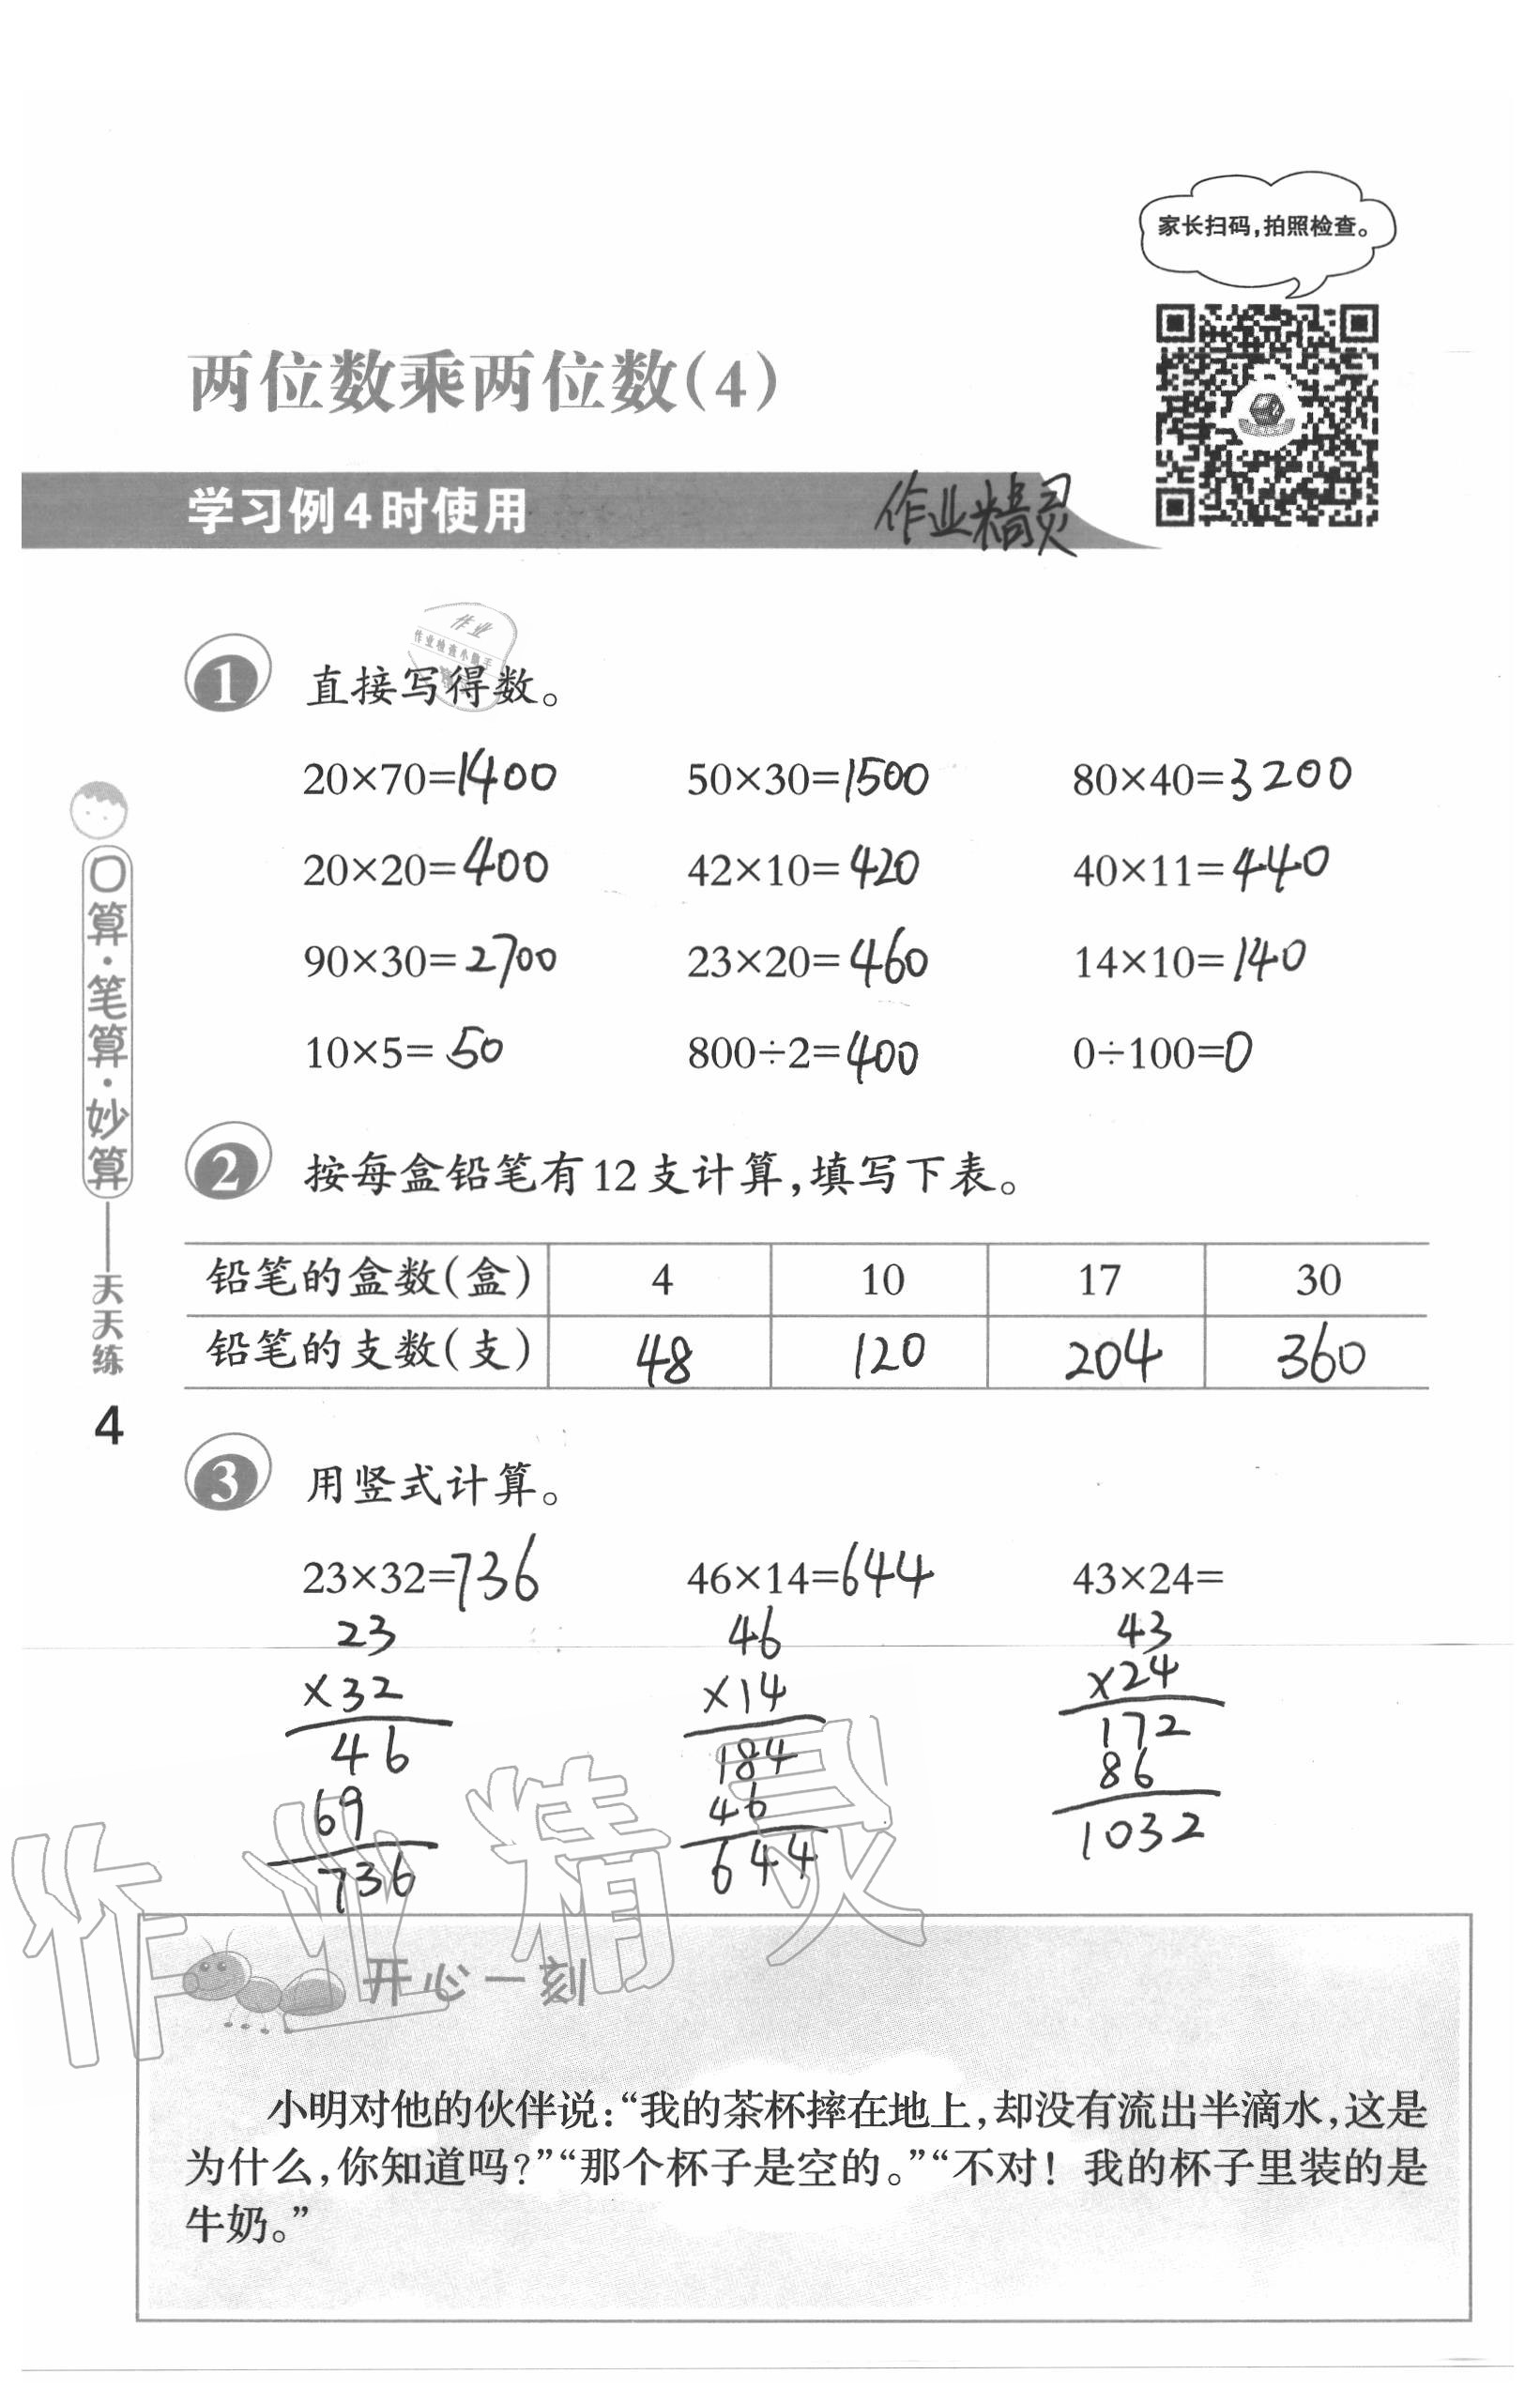 家长扫码，拍照检查。
两位数乘两位数(4)
学习例4时使用
作业精灵
作业
作业检查小助手
1 直接写得数。
20×70=1400 50×30=1500 80×40=3200
20×20=400 42×10=420 40×11=440
90×30=2700 23×20=460 14×10=140
10×5=50 800÷2=400 0÷100=0
2 按每盒铅笔有12支计算，填写下表。
铅笔的盒数(盒) 4 10 17 30
铅笔的支数(支) 48 120 204 360
口算·笔算·妙算——天天练
4
3 用竖式计算。
23×32=736 46×14=644 43×24=
23 46 43
×32 ×14 ×24
46 184 172
69 46 86
736 644 1032
作业精灵
开心一刻
小明对他的伙伴说：“我的茶杯摔在地上，却没有流出半滴水，这是
为什么，你知道吗？”“那个杯子是空的。”“不对！我的杯子里装的是
牛奶。”